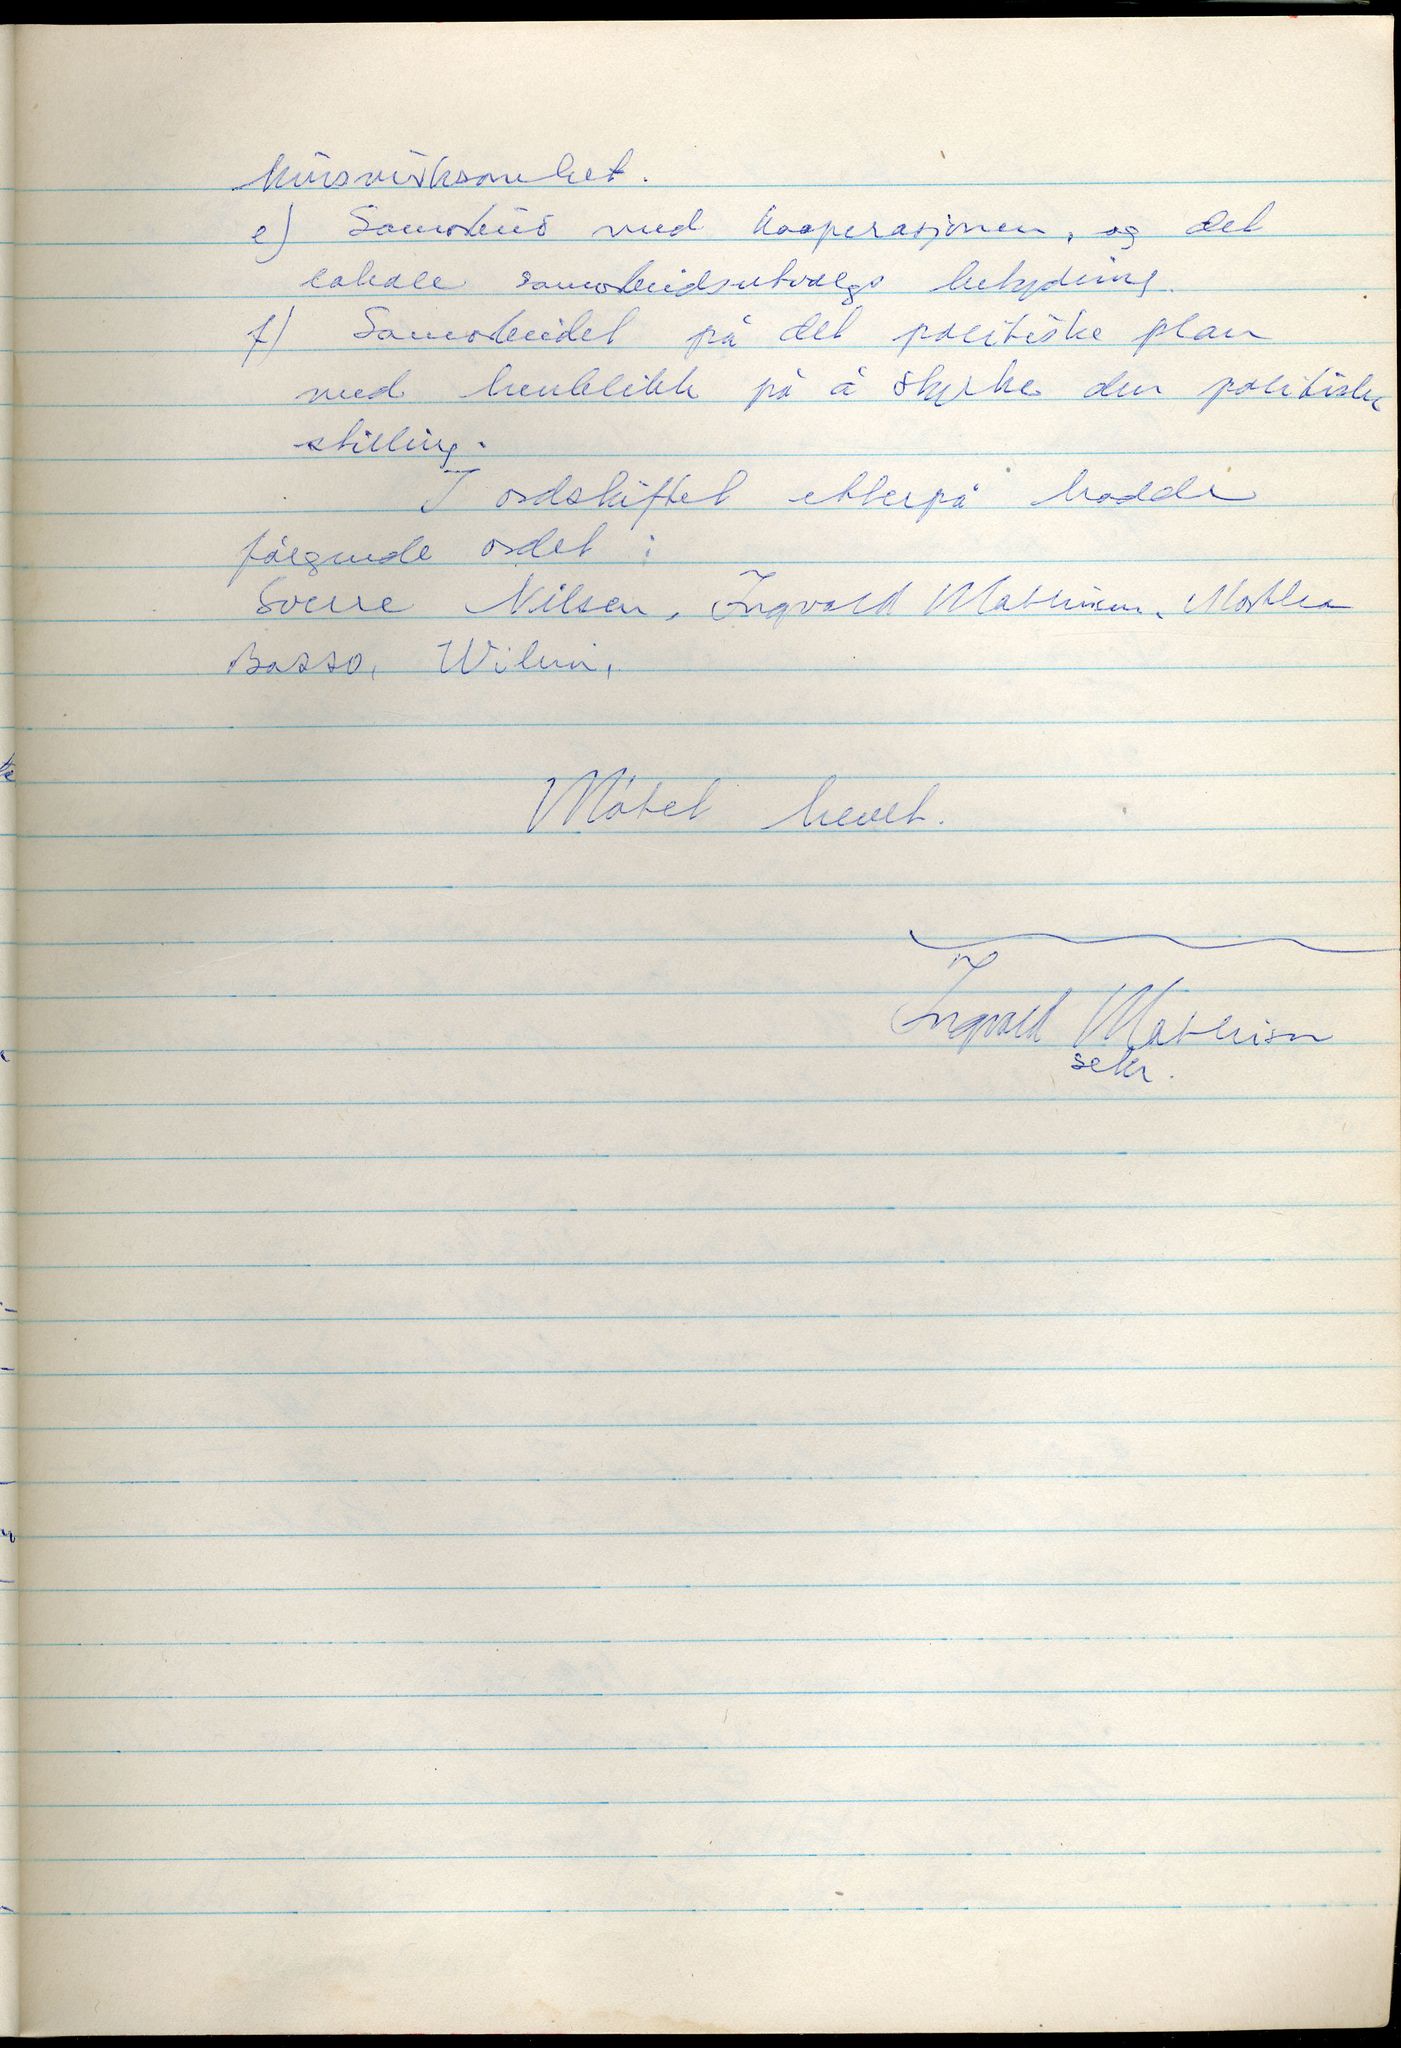 kursvirksomhet.
e) Samarbeid med kooperasjonen, og det
lokale samarbeidsutvalgs betydning.
f) Samarbeidet på det politiske plan
med henblikk på å styrke den politiske
stilling.
I ordskiftet etterpå hadde
følgende ordet:
Sverre Nilsen, Ingvald Mathisen, Martha
Basso,
Møtet hevet.
Ingvald Mathisen
sekr.